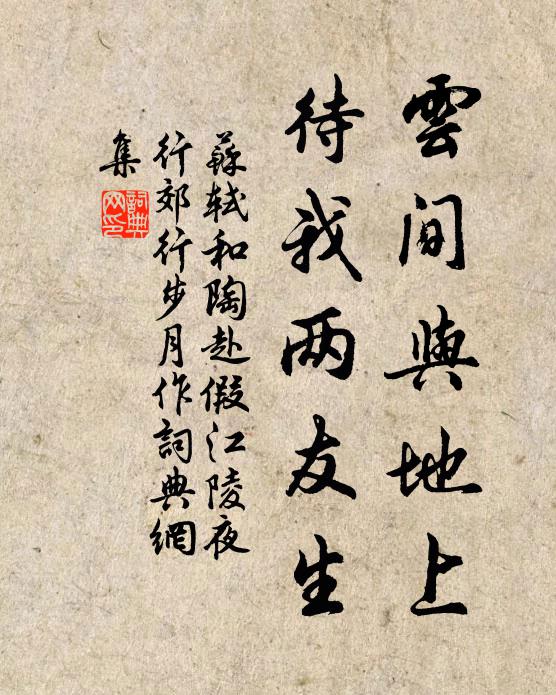 雲間與地上
待我两友生
蘇軾和陶赴假江陵夜
行郊行步月作詞典網
集
詞典
网印